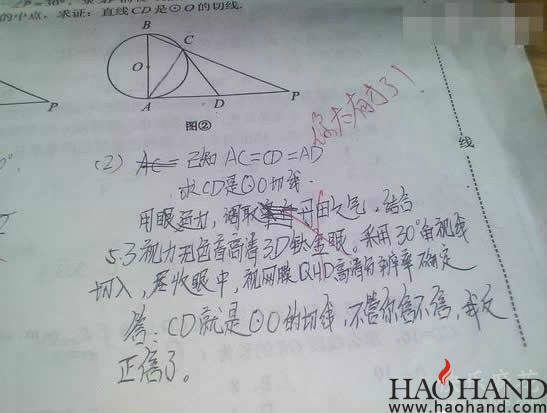 的中点，求证：直线CD是⊙O的切线.
B
C
O
A
D
P
P
图②
你太有才了！
线
(2) 已知 AC=CD=AD
求CD是⊙O切线.
用眼运力，调取丹田之气，结合
5.3视力无色盲高清3D钛金眼。采用30°角视线
切入，尽收眼中，视网膜QHD高清分辨率确定
答：CD就是⊙O的切线，不管你信不信，我反
正信了。
HAOHAND
www.haohand.com